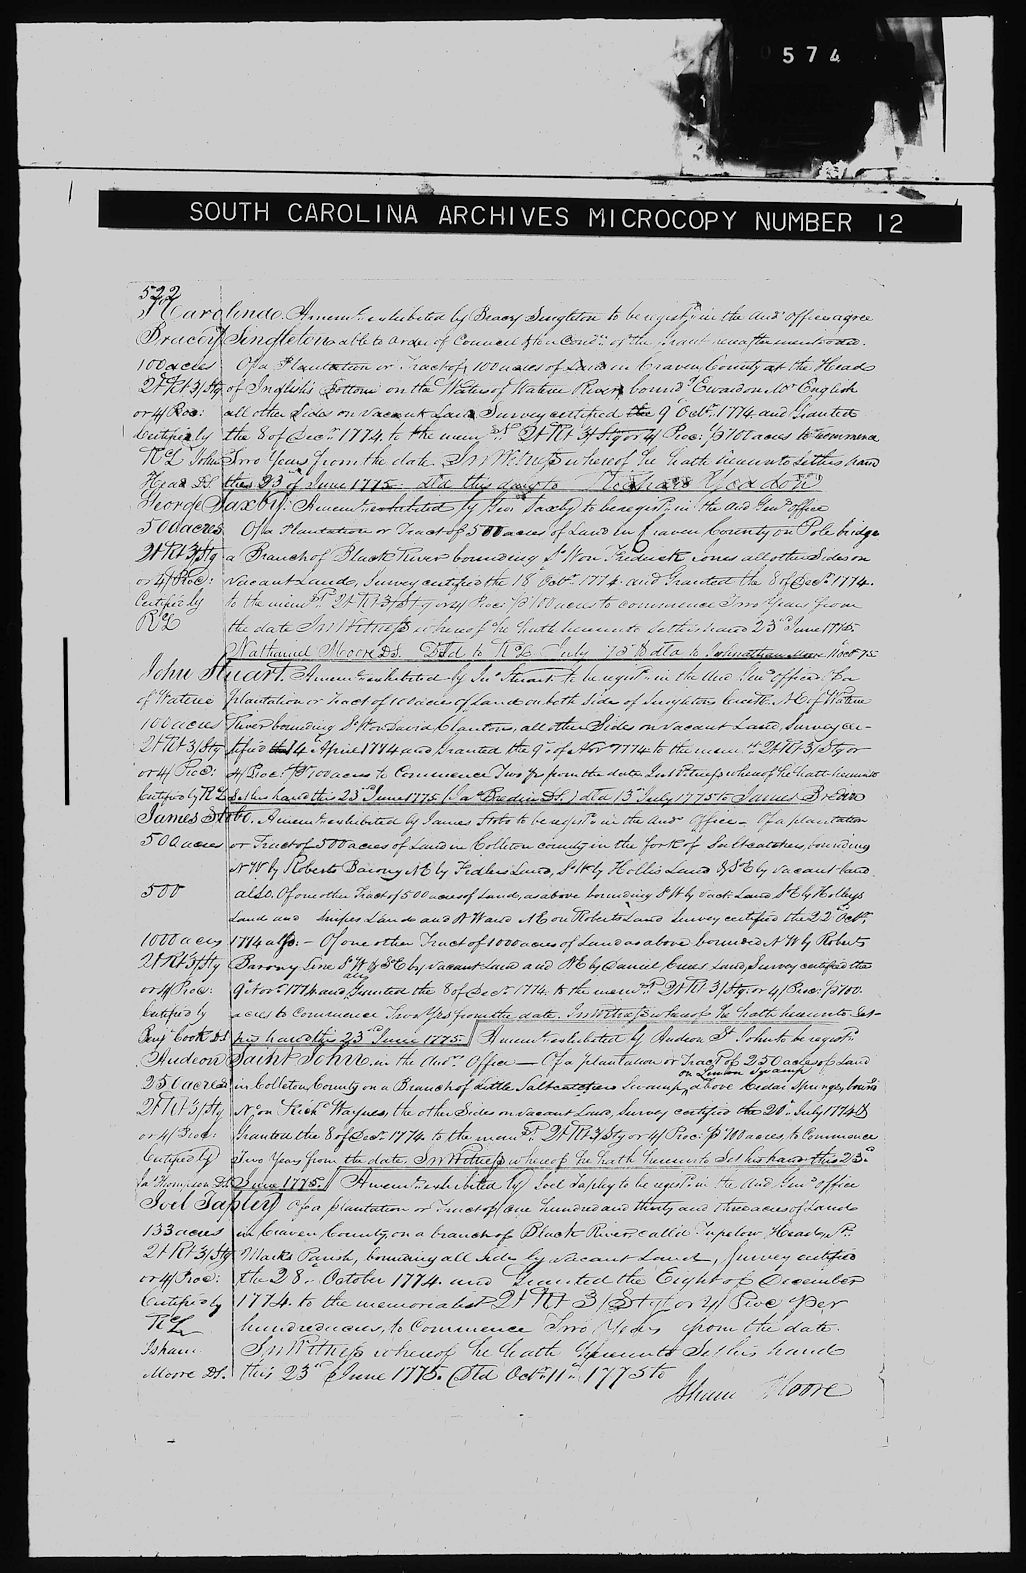 0574
SOUTH CAROLINA ARCHIVES MICROCOPY NUMBER 12
522
So Carolina. A memo.l exhibited by Bracey Singleton to be regist.d in the Aud.rs Office agree
Bracey Singleton able to order of Council & the Cond.n of the Grant hereafter mentioned.
100 acres Of a Plantation or Tract of 100 acres of Land in Craven County at the Head
2/ St 3/ Stg of English's Bottom on the Waters of Wateree River bound.g Ew.d on Mr English
or 4/ Proc: all other Sides on vacant Land Survey certified the 9 Oct.r 1774. and Granted
Certified by the 8 of Dec.r 1774. to the mem.st 2/ St 3/ Stg or 4/ Proc: p 100 acres to commence
R L John Two Years from the date. In Witness whereof he hath hereunto set his hand
Head DS this 23 of June 1775. Dld this day to Richard Yeadon
George Saxby. A memo.l exhibited by Geo: Saxby to be regist.d in the Aud Gen.s office
500 acres Of a Plantation or Tract of 500 acres of Land in Craven County on Pole bridge
2/ St 3/ Stg a Branch of Black River bounding S W on Frederick Jones all other Sides on
or 4/ Proc: vacant Lands, Survey certified the 18 Oct.r 1774. and Granted the 8 of Dec.r 1774.
Certified by to the mem.st 2/ St 3/ Stg or 4/ Proc: p 100 acres to commence Two Years from
R L the date In Witness whereof he hath hereunto set his hand 23 June 1775.
Nathaniel Moore DS. Dld to R L July 75 & dld to Johnathan Moore 11 Oct 75
John Stuart. A memo.l exhibited by Jn.o Stuart to be regist.d in the Aud Gen.s Office. Of a
of Wateree plantation or Tract of 100 acres of Land on both Sides of Singletons Creek. N E of Wateree
100 acres River bounding S W on David Clantons, all other Sides on vacant Land, Survey cer-
2/ St 3/ Stg tified the 14 April 1774 and Granted the 9 of Nov 1774 to the mem.st 2/ St 3/ Stg or
or 4/ Proc: 4/ Proc: p 100 acres to Commence Two Ys from the date. In Witness whereof he hath hereunto
Certified by R L Set his hand this 23 June 1775 (Ja.s DS.) dld 13 July 1775 to James
James Stobo. A memo.l exhibited by James Stobo to be regist.d in the Aud.r Office - Of a plantation
500 acres or Tract of 500 acres of Land in Colleton county in the fork of Saltcatchers, bounding
N W by Roberts Barony N E by Fidlers Land, S W by Hollis Land & S E by vacant land.
500 also. Of one other Tract of 500 acres of Land, as above bounding S W by vact. Land S E by
Land and Land and N Ward N E on Roberts Land Survey certified the 22 Oct.r
1000 acres 1774 also: - Of one other Tract of 1000 acres of Land as above bounded N W by Roberts
2/ St 3/ Stg Barony Line S W & S E by vacant Land and N E by Daniel Land, Survey certified the
or 4/ Proc: 9 Nov.r 1774 and Granted the 8 of Dec.r 1774. to the mem.st 2/ St 3/ Stg. or 4/ Proc: p 100.
Certified by acres to Commence Two Yrs from the date. In Witness whereof he hath hereunto Set-
Benj Cook DS his hand this 23 June 1775. A memo.l exhibited by Audeon St John to be regist.d
Audeon Saint John in the Aud.rs Office - Of a plantation or Tract of 250 acres of Land
on Lemon Swamp
250 acres in Colleton County on a Branch of Little Saltcatchers Swamp, above Cedar Springs, bound.g
2/ St 3/ Stg N.o on Rich.d Haynes, the other Sides on vacant Land, Survey certified the 20 July 1774 &
or 4/ Proc: Granted the 8 of Dec.r 1774. to the mem.st 2/ St 3/ Stg or 4/ Proc: p 100 acres, to Commence
Certified by Two Years from the date. In Witness whereof he hath hereunto Set his hand this 23
Ja Thompson DS June 1775. A memo.l exhibited by Joel Tapley to be regist.d in the Aud Gen.s office
Joel Tapley Of a plantation or Tract of (one hundred and thirty and three acres of Land
133 acres in Craven County, on a branch of Black River called Tupelow Head, St.
2/ St 3/ Stg Marks Parish, bounding all Sides by vacant Land, Survey certified
or 4/ Proc: the 28 October 1774. and Granted the Eight of December
Certified by 1774. to the memorialist 2/ St 3/ Stg or 4/ Proc per
R L hundred acres, to Commence Two Years from the date.
Isham In Witness whereof he hath hereunto Set his hand
Moore DS. this 23 June 1775. Dld Oct.r 11 1775 to
Isham Moore